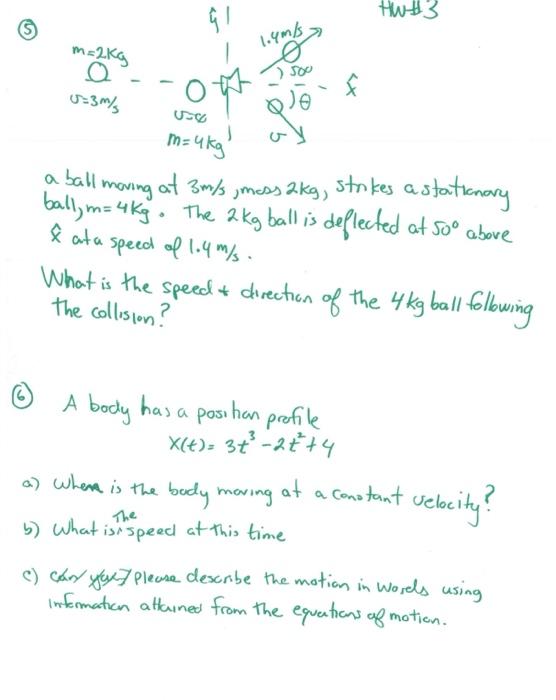 HW#3
⑤
ŷ
1.4m/s
m=2kg
50°
x̂
θ
v=3m/s
v=∅
m=4kg
v
a ball moving at 3m/s, mass 2kg, strikes a stationary
ball, m=4kg. The 2kg ball is deflected at 50° above
x̂ at a speed of 1.4 m/s.
What is the speed + direction of the 4kg ball following
the collision?
⑥ A body has a position profile
X(t)= 3t³-2t²+4
a) when is the body moving at a constant velocity?
b) What is the speed at this time
c) Please describe the motion in words using
information attained from the equations of motion.